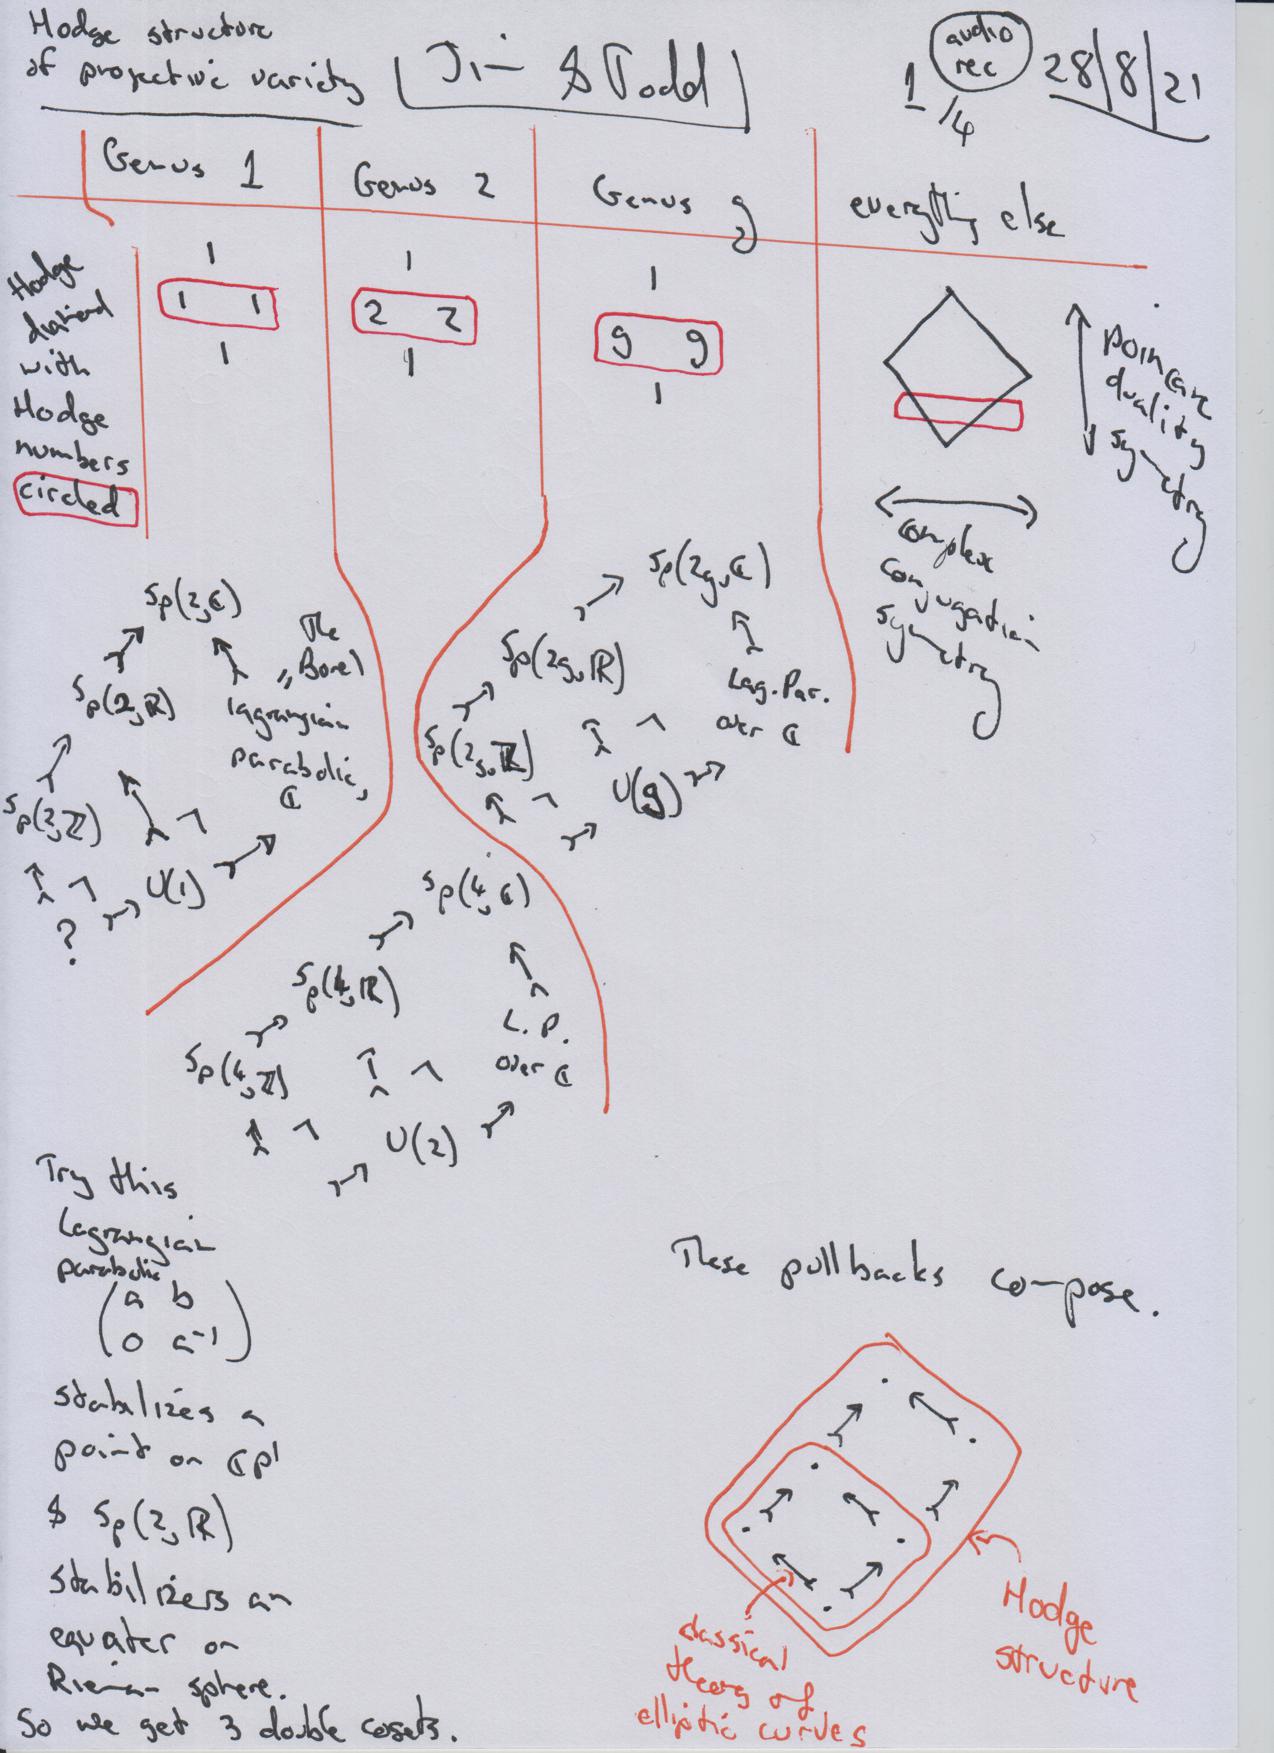 Hodge structure
of projective variety
Jim & Todd
audio
rec
1/4
28/8/21
Genus 1
Genus 2
Genus g
everything else
Hodge
diamond
with
Hodge
numbers
circled
1
1 1
1
1
2 2
1
1
g g
1
Poincare
duality
symmetry
complex
conjugation
symmetry
Sp(2,ℂ)
Sp(2,ℝ)
Sp(2,ℤ)
U(1)
?
The
„Borel
lagrangian
parabolic,
ℂ
Sp(2g,ℂ)
Sp(2g,ℝ)
Sp(2g,ℤ)
U(g)
Lag. Par.
over ℂ
Sp(4,ℂ)
Sp(4,ℝ)
Sp(4,ℤ)
U(2)
L.P.
over ℂ
Try this
Lagrangian
parabolic
(a b
0 a⁻¹)
stabilizes a
point on ℂP¹
& Sp(2,ℝ)
stabilizers an
equater on
Rieman sphere.
So we get 3 double cosets.
These pullbacks compose.
classical
theory of
elliptic curves
Hodge
structure